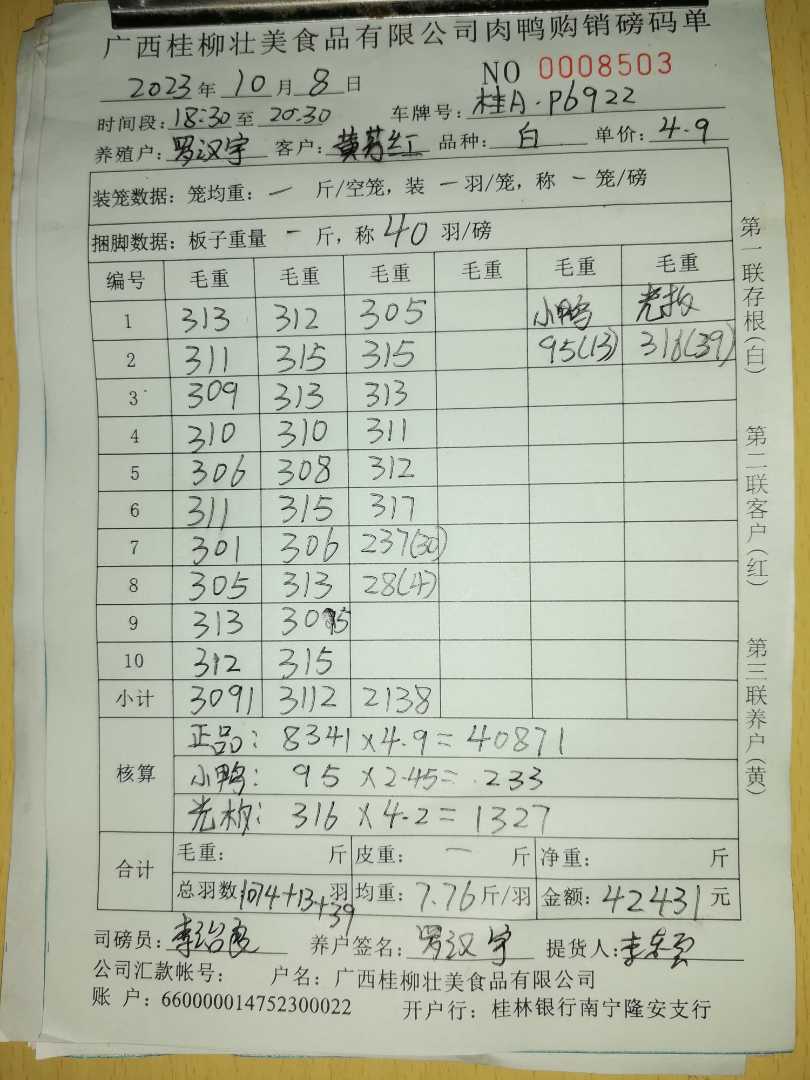 广西桂柳壮美食品有限公司肉鸭购销磅码单
2023年10月8日 NO 0008503
时间段：18:30至20:30 车牌号：桂A·P6922
养殖户：罗汉宇 客户：黄 红 品种：白 单价：4.9
装笼数据：笼均重：一斤/空笼，装一羽/笼，称一笼/磅
捆脚数据：板子重量一斤，称40羽/磅
编号 毛重 毛重 毛重 毛重 毛重 毛重
1 313 312 305 小鸭 光板
2 311 315 315 95(13) 316(39)
3 309 313 313
4 310 310 311
5 306 308 312
6 311 315 317
7 301 306 237(30)
8 305 313 28(4)
9 313 305
10 312 315
小计 3091 3112 2138
核算
正品：8341×4.9=40871
小鸭：95×2.45=233
光板：316×4.2=1327
合计
毛重： 斤 皮重：一斤 净重： 斤
总羽数：1074+13+39羽 均重：7.76斤/羽 金额：42431元
司磅员：李 良 养户签名：罗汉宇 提货人：李
公司汇款帐号： 户名：广西桂柳壮美食品有限公司
账 户：660000014752300022 开户行：桂林银行南宁隆安支行
第一联存根(白) 第二联客户(红) 第三联养户(黄)